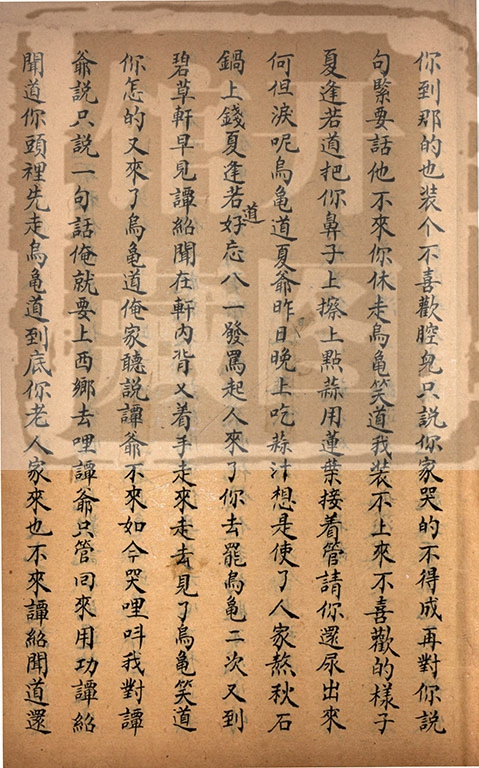 你到那的也装个不喜歡腔皃只說你家哭的不得成再對你說
句緊要話他不來你休走烏龜笑道我装不上來不喜歡的樣子
夏逢若道把你鼻子上擦上點蒜用蓮葉接着管請你還尿出來
何但淚呢烏龜道夏爺昨日晚上吃蒜汁想是使了人家熬秋石
鍋上錢夏逢若道好忘八一發罵起人來了你去罷烏龜二次又到
碧草軒早見譚紹聞在軒內背叉着手走來走去見了烏龜笑道
你怎的又來了烏龜道俺家聽說譚爺不來如今哭哩呌我對譚
爺說只說一句話俺就要上西鄉去哩譚爺只管回來用功譚紹
聞道你頭裡先走烏龜道到底你老人家來也不來譚紹聞道還